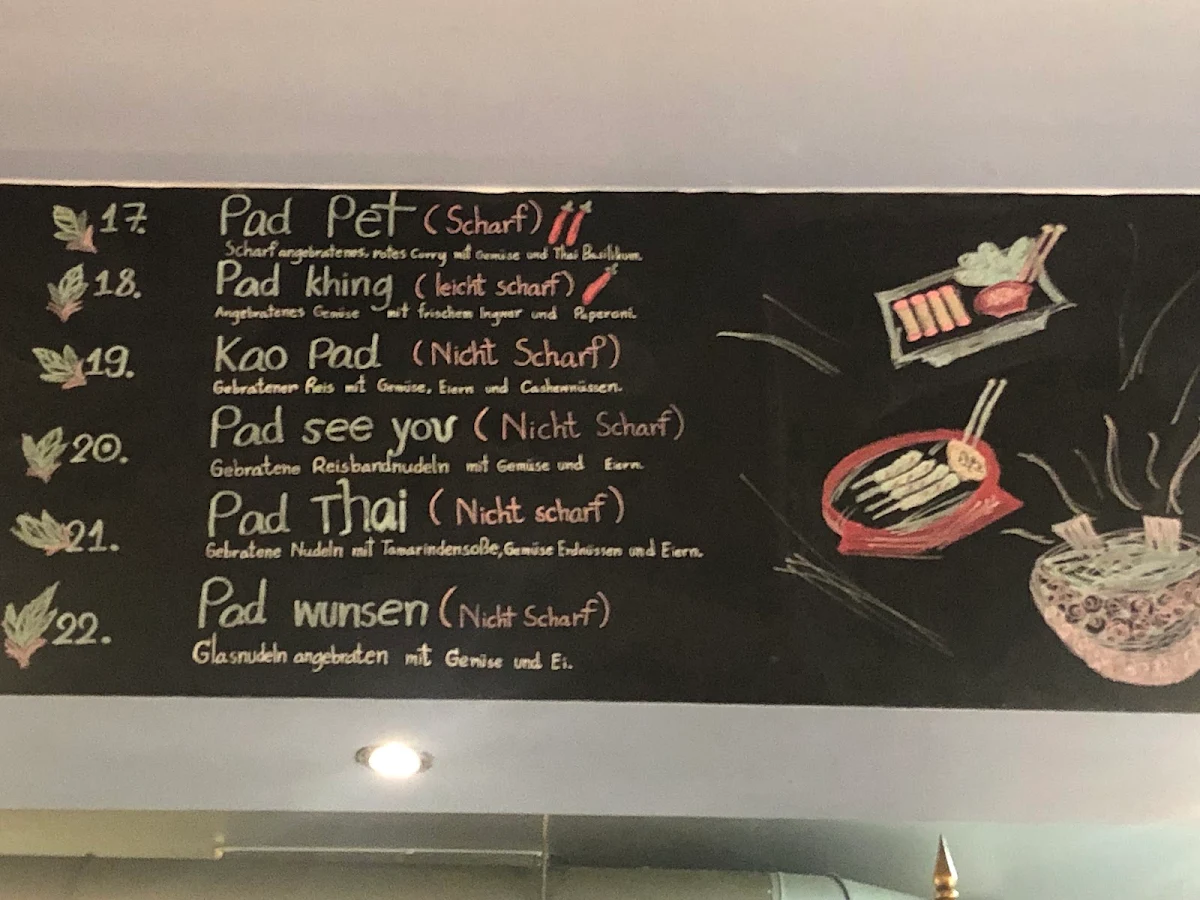 17. Pad Pet (Scharf)
Scharf angebratenes, rotes Curry mit Gemüse und Thai Basilikum.
18. Pad khing (leicht scharf)
Angebratenes Gemüse mit frischem Ingwer und Peperoni.
19. Kao Pad (Nicht Scharf)
Gebratener Reis mit Gemüse, Eiern und Cashewnüssen.
20. Pad see you (Nicht Scharf)
Gebratene Reisbandnudeln mit Gemüse und Eiern.
21. Pad Thai (Nicht scharf)
Gebratene Nudeln mit Tamarindensoße, Gemüse Erdnüssen und Eiern.
22. Pad wunsen (Nicht Scharf)
Glasnudeln angebraten mit Gemüse und Ei.